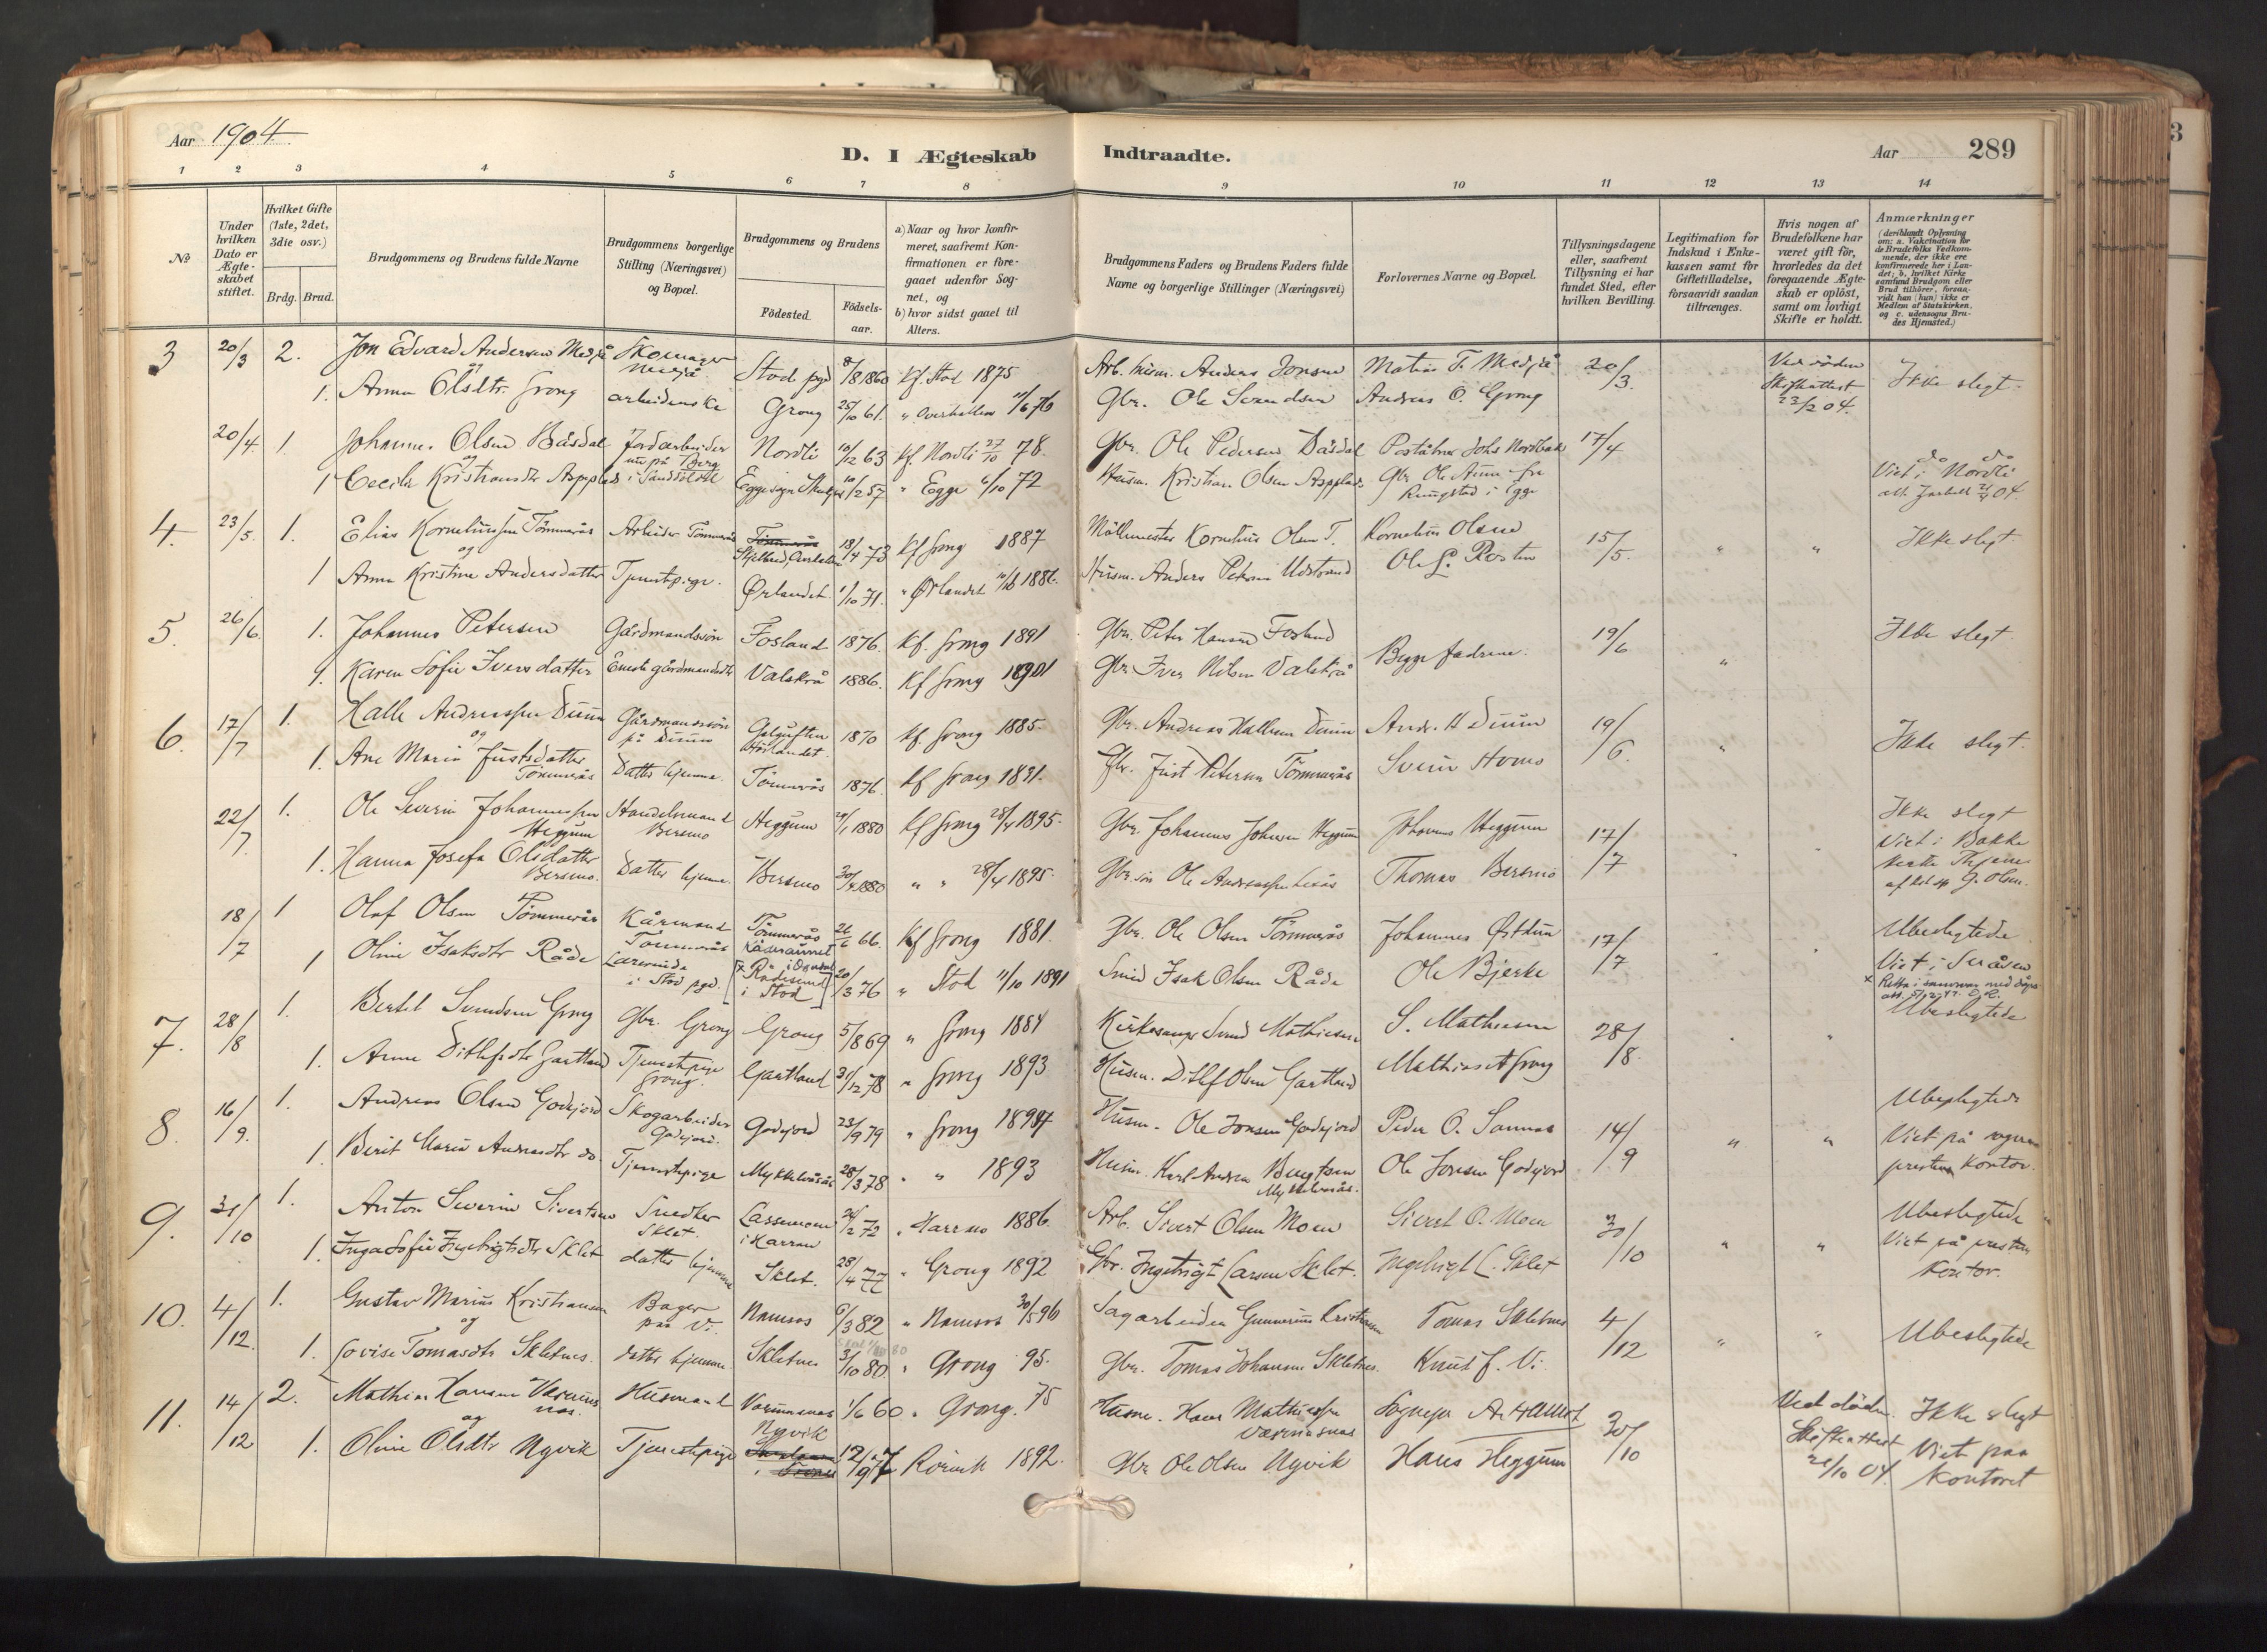 Aar 1904
D. I Ægteskab Indtraadte.
Aar 289
1 2 3 4 5 6 7 8 9 10 11 12 13 14
No
Under hvilken Dato er Ægteskabet stiftet.
Hvilket Gifte (1ste, 2det, 3die osv.)
Brdg. Brud.
Brudgommens og Brudens fulde Navne
Brudgommens borgerlige Stilling (Næringsvei) og Bopæl.
Brudgommens og Brudens
Födested.
Födselsaar.
a) Naar og hvor konfirmeret, saafremt Konfirmationen er foregaaet udenfor Sognet, og
b) hvor sidst gaaet til Alters.
Brudgommens Faders og Brudens Faders fulde Navne og borgerlige Stillinger (Næringsvei)
Forlovernes Navne og Bopæl.
Tillysningsdagene eller, saafremt Tillysning ei har fundet Sted, efter hvilken Bevilling.
Legitimation for Indskud i Enkekassen samt for Giftetilladelse, forsaavidt saadan tiltrænges.
Hvis nogen af Brudefolkene har været gift för, hvorledes da det foregaaende Ægteskab er oplöst, samt om lovligt Skifte er holdt.
Anmærkninger (deriblandt Oplysning om: a. Vakcination for de Brudefolks Vedkommende, der ikke ere konfirmerede her i Landet; b. hvilket Kirkesamfund Brudgom eller Brud tilhörer, forsaavidt han (hun) ikke er Medlem af Statskirken, og c. udensogns Brudes Hjemsted.)
3 20/3 2. Jon Edvard Andersen Medjå Skomager Medjå Stod pgd 8/8 1860 Kf. Stod 1875 Arb. husm. Anders Jonsen Matias T. Medjå 20/3 Ved döden Skifteattest 23/2 04. Ikke slegt.
og
1. Anna Olsdtr. Grong arbeiderske Grong 25/10 61. " Overhallen 11/6 76 Gbr. Ole Svendsen Andreas O. Grong
20/4 1. Johannes Olsen Båsdal Jordarbeider nu på Berg i Sandsöldal Nordli 10/12 63 Kf. Nordli 27/10 78. Gbr. Ole Pedersen Båsdal Poståbner Johs Nordbak 17/4 do do
og
1 Cecilie Kristiansdtr Aspplas Egge sogn 10/2 57 " Egge 6/10 72 Husm. Kristian Olsen Aspplas Gbr. Ole Aunn fra Rungstad i Egge Viet i Nordli
4. 23/5. 1. Elias Korneliussen Tömmerås Arbeider Tömmerås 18/4 73 Kf Grong 1887 Möllemester Kornelius Olsen T. Kornelius Olsen 15/5. " " Ikke slegt
og
1 Anna Kristine Andersdatter Tjenestpige. Ørlandet 1/10 71. " Ørlandet 1886. Husm. Anders Petersen Udstrand Ole L. Rosten
5. 26/6. 1. Johannes Petersen Gårdmandssön Fosland 1876. Kf. Grong 1891 Gbr. Peter Hansen Fosland Begge fædrene. 19/6 " Ikke slegt.
1. Karen Sofie Iversdatter Eneste gårdmandsdtr Valskrå 1886. Kf Grong 1901 Gbr. Iver Nilsen Valskrå
6. 17/7 1. Halle Andreassen Duun Gårdmandssön på Duun 1870 Kf. Grong 1885. Gbr. Andreas Hallesen Duun Andr. H Duun 19/6. " Ikke slegt.
og
1. Ane Marie Justsdatter Tömmerås Datter hjemme. Tömmerås 1876. Kf Grong 1891. Gbr. Just Petersen Tömmerås Svein Homo
22/7. 1. Ole Severin Johannessen Heggum Handelsmand Bersmo Heggum 29/1 1880 Kf Grong 28/4 1895. Gbr. Johannes Johnsen Heggum Johannes Heggum 17/7 Ikke slegt Viet i Bakke Kirke Thjem af Res. sp G. Olsen.
1. Hanna Josefa Olsdatter Bersmo. Datter hjemme. Bersmo 30/4 1880 " " 28/4 1895. Gbr. sön Ole Andreassen Thomas Bersmo
18/7 1 Olaf Olsen Tömmerås Kårmand Tömmerås Tömmerås 26/6 66. Kf Grong 1881. Gbr. Ole Olsen Tömmerås Johannes Østduun 17/7 Ubeslegtede
1 Oline Isaksdtr Råde Lærerinde i Stod pgd. i Stod 20/3 76 " Stod 11/10 1891 Smed Isak Olsen Råde Ole Bjerke Viet i Snåsen
7. 28/8 1. Bertel Svendsen Grong Gbr. Grong Grong 5/8 69 " Grong 1884 Kirkesanger Svend Mathiesen S. Mathiesen 28/8. Ubeslegtede
1. Anne Ditlefsdtr Gartland Tjenestpige Grong. Gartland 31/12 78 " Grong 1893 Husm. Ditlef Olsen Gartland Mathias A Grong
8. 16/9. 1. Andreas Olsen Godejord Skogarbeider Godejord. Godejord 23/9 79 " Grong 1894 Husm. Ole Jonsen Godejord Peder O. Sannas 14/9 " " Ubeslegtede
1. Berit Maria Andreasdtr do Tjenestpige Mykkelvåsås 28/3 78 " " 1893 Husm. Karl Andrea Bengtsen Mykkelvasås. Ole Jonsen Godejord Viet på sogneprestens kontor.
9. 31/10 1. Anton Severin Sivertsen Snedker Sklet. Lassemoen i Harran 24/2 72 " Harran 1886. Arb. Sivert Olsen Moen Sivert O. Moen 30/10 " " Ubeslegtede
1. Inga Sofie Ingebrigtsdtr Sklet datter hjemme Sklet. 28/4 77 " Grong 1892 Gbr. Ingebrigt Larsen Sklet. Ingebrigt L. Sklet Viet på prestens kontor.
10. 4/12. 1. Gustav Marius Kristiansen Bager paa Vi. Namsos 6/3 82 " Namsos 30/5 96 Sagarbeider Gunnerius Kristiansen Tomas Skletnes 4/12 " " Ubeslegtede
og
1. Lovise Tomasdtr Skletnes. datter hjemme Skletnes 3/10 80. " Grong 95. Gbr. Tomas Johansen Skletnes. Knut J. Vi.
11. 14/12 2. Mathias Hansen Værmusnas. Husmand Varmasnas 1/6 60 " Grong. 75 Husm. Hans Mathiassen Værmasnas 30/10 Ved döden. Skifteattest 21/10 04. Ikke slegt
og
1. Oline Olsdtr Nyvik Tjenestpige Nyvik Rörvik 1892. Gbr Ole Olsen Nyvik Hans Heggum Viet paa kontoret